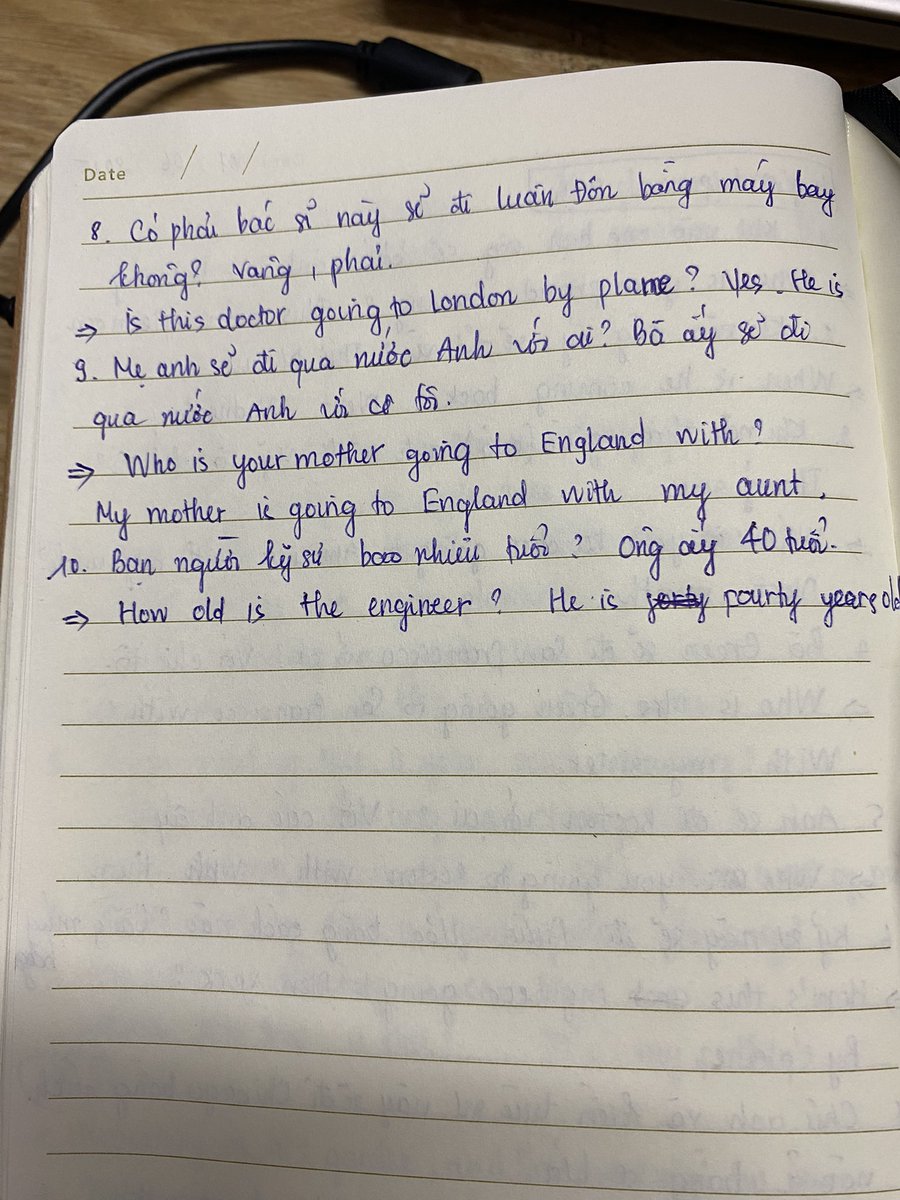 Date / /
8. Có phải bác sỉ này sẻ đi luân Đôn bằng máy bay
không? vang, phải.
⇒ is this doctor going to London by plane? Yes. He is
9. Mẹ anh sẻ đi qua nước Anh với ai? Bà ấy sẻ đi
qua nước Anh với cô tôi.
⇒ Who is your mother going to England with?
My mother is going to England with my aunt.
10. Bạn người kỹ sư bao nhiêu tuổi? Ông ấy 40 tuổi.
⇒ How old is the engineer? He is pourty years old